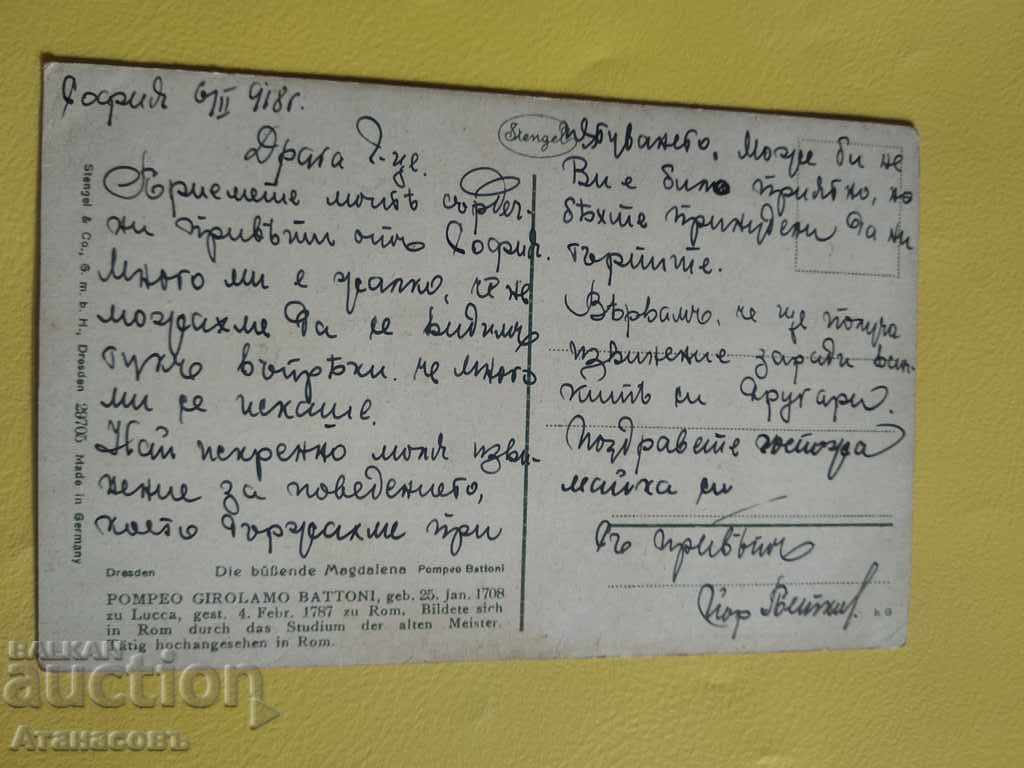 София 6/II 918 г.
Драга Г-це.
Приемете моите сърдеч-
ни привѣти отъ София.
Много ми е жалко, че не
можахме да се видимъ
тукъ въпрѣки че много
ми се искаше.
Най искренно моля изви-
нение за поведението,
което държахме при
Stengel
пѫтуването. Може би не
Ви е било приятно, но
бѣхте принудени да ни
търпите.
Вѣрвамъ, че ще получа
извинение заради
си другари.
Поздравете госпожа
майка си
Съ привѣтъ
Йор
Stengel & Co., G. m. b. H., Dresden 29705 Made in Germany
Dresden Die büßende Magdalena Pompeo Battoni
POMPEO GIROLAMO BATTONI, geb. 25. Jan. 1708
zu Lucca, gest. 4. Febr. 1787 zu Rom. Bildete sich
in Rom durch das Studium der alten Meister.
Tätig hochangesehen in Rom.
BALKAN
auction
Атанасовъ